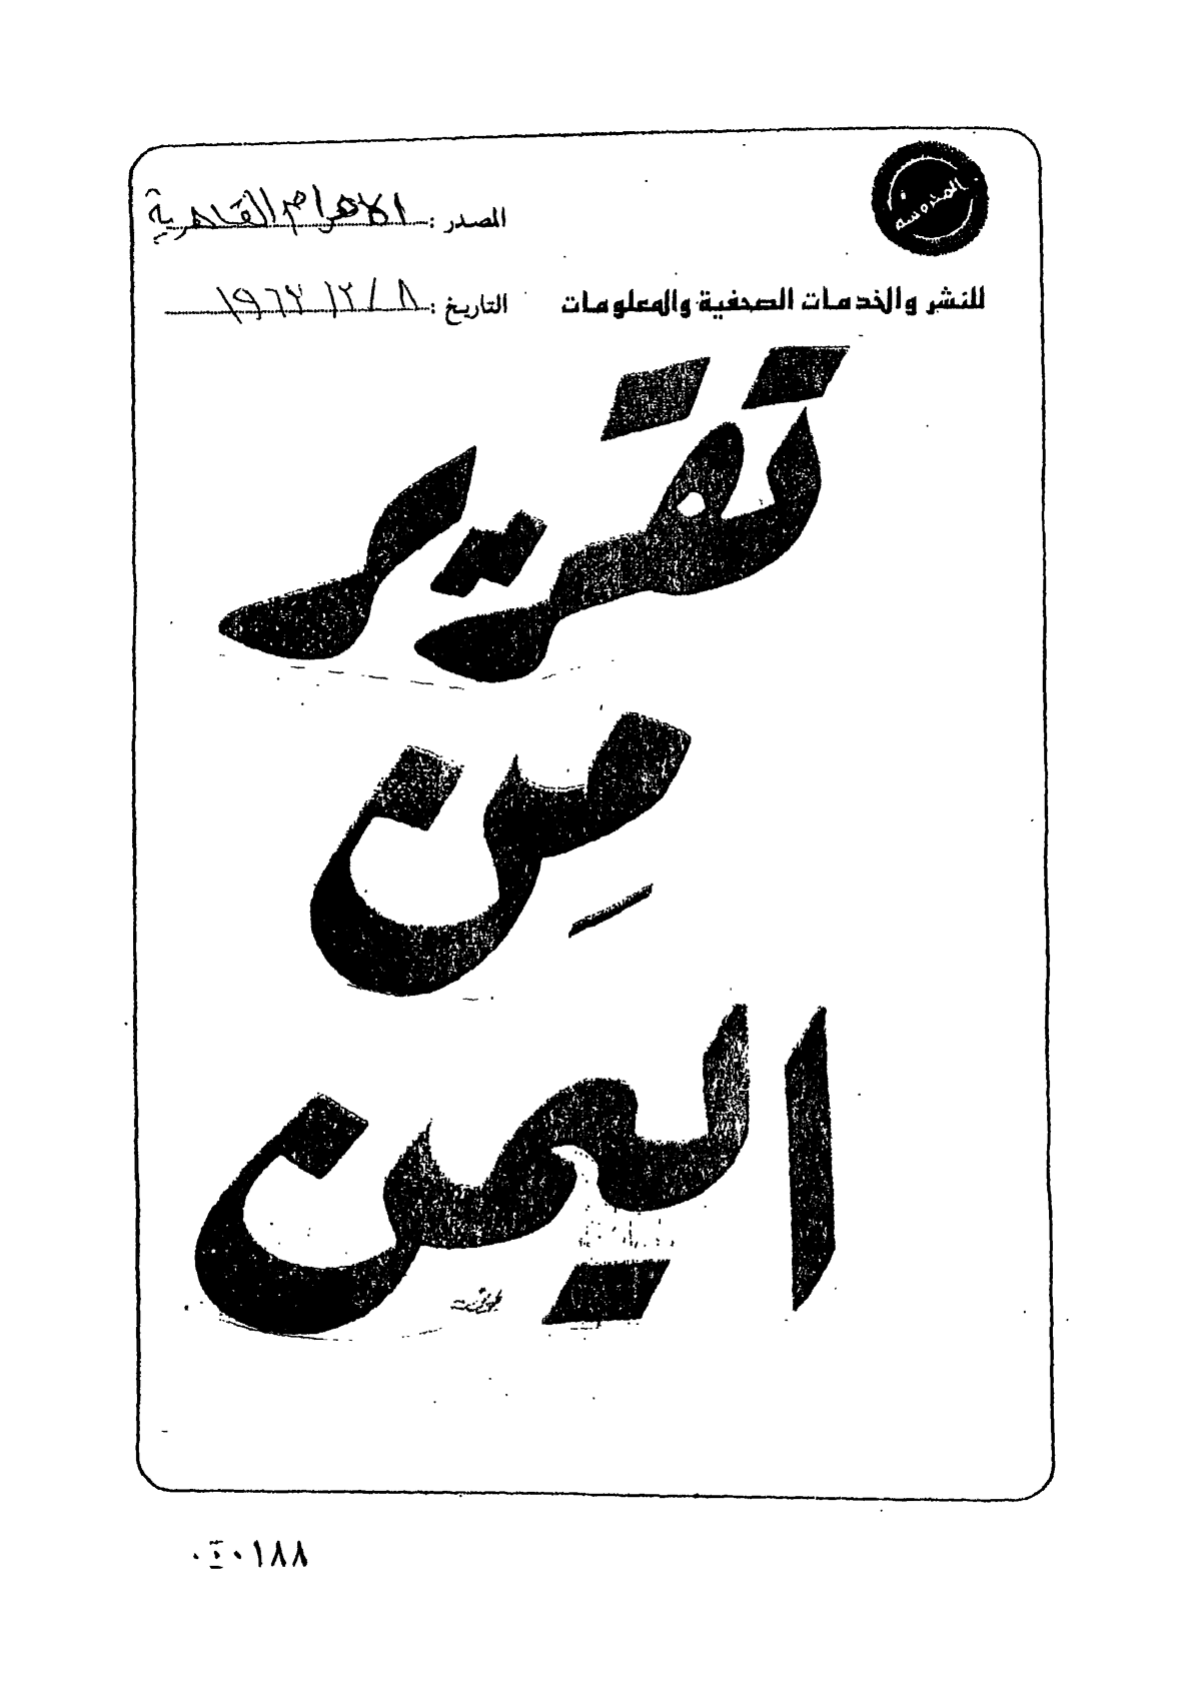 المحروسة
المصدر : الاهرام القاهرية
للنشر والخدمات الصحفية والمعلومات
التاريخ : ٨ / ٢ / ١٩٦٢
تقرير
مِن
اليمن